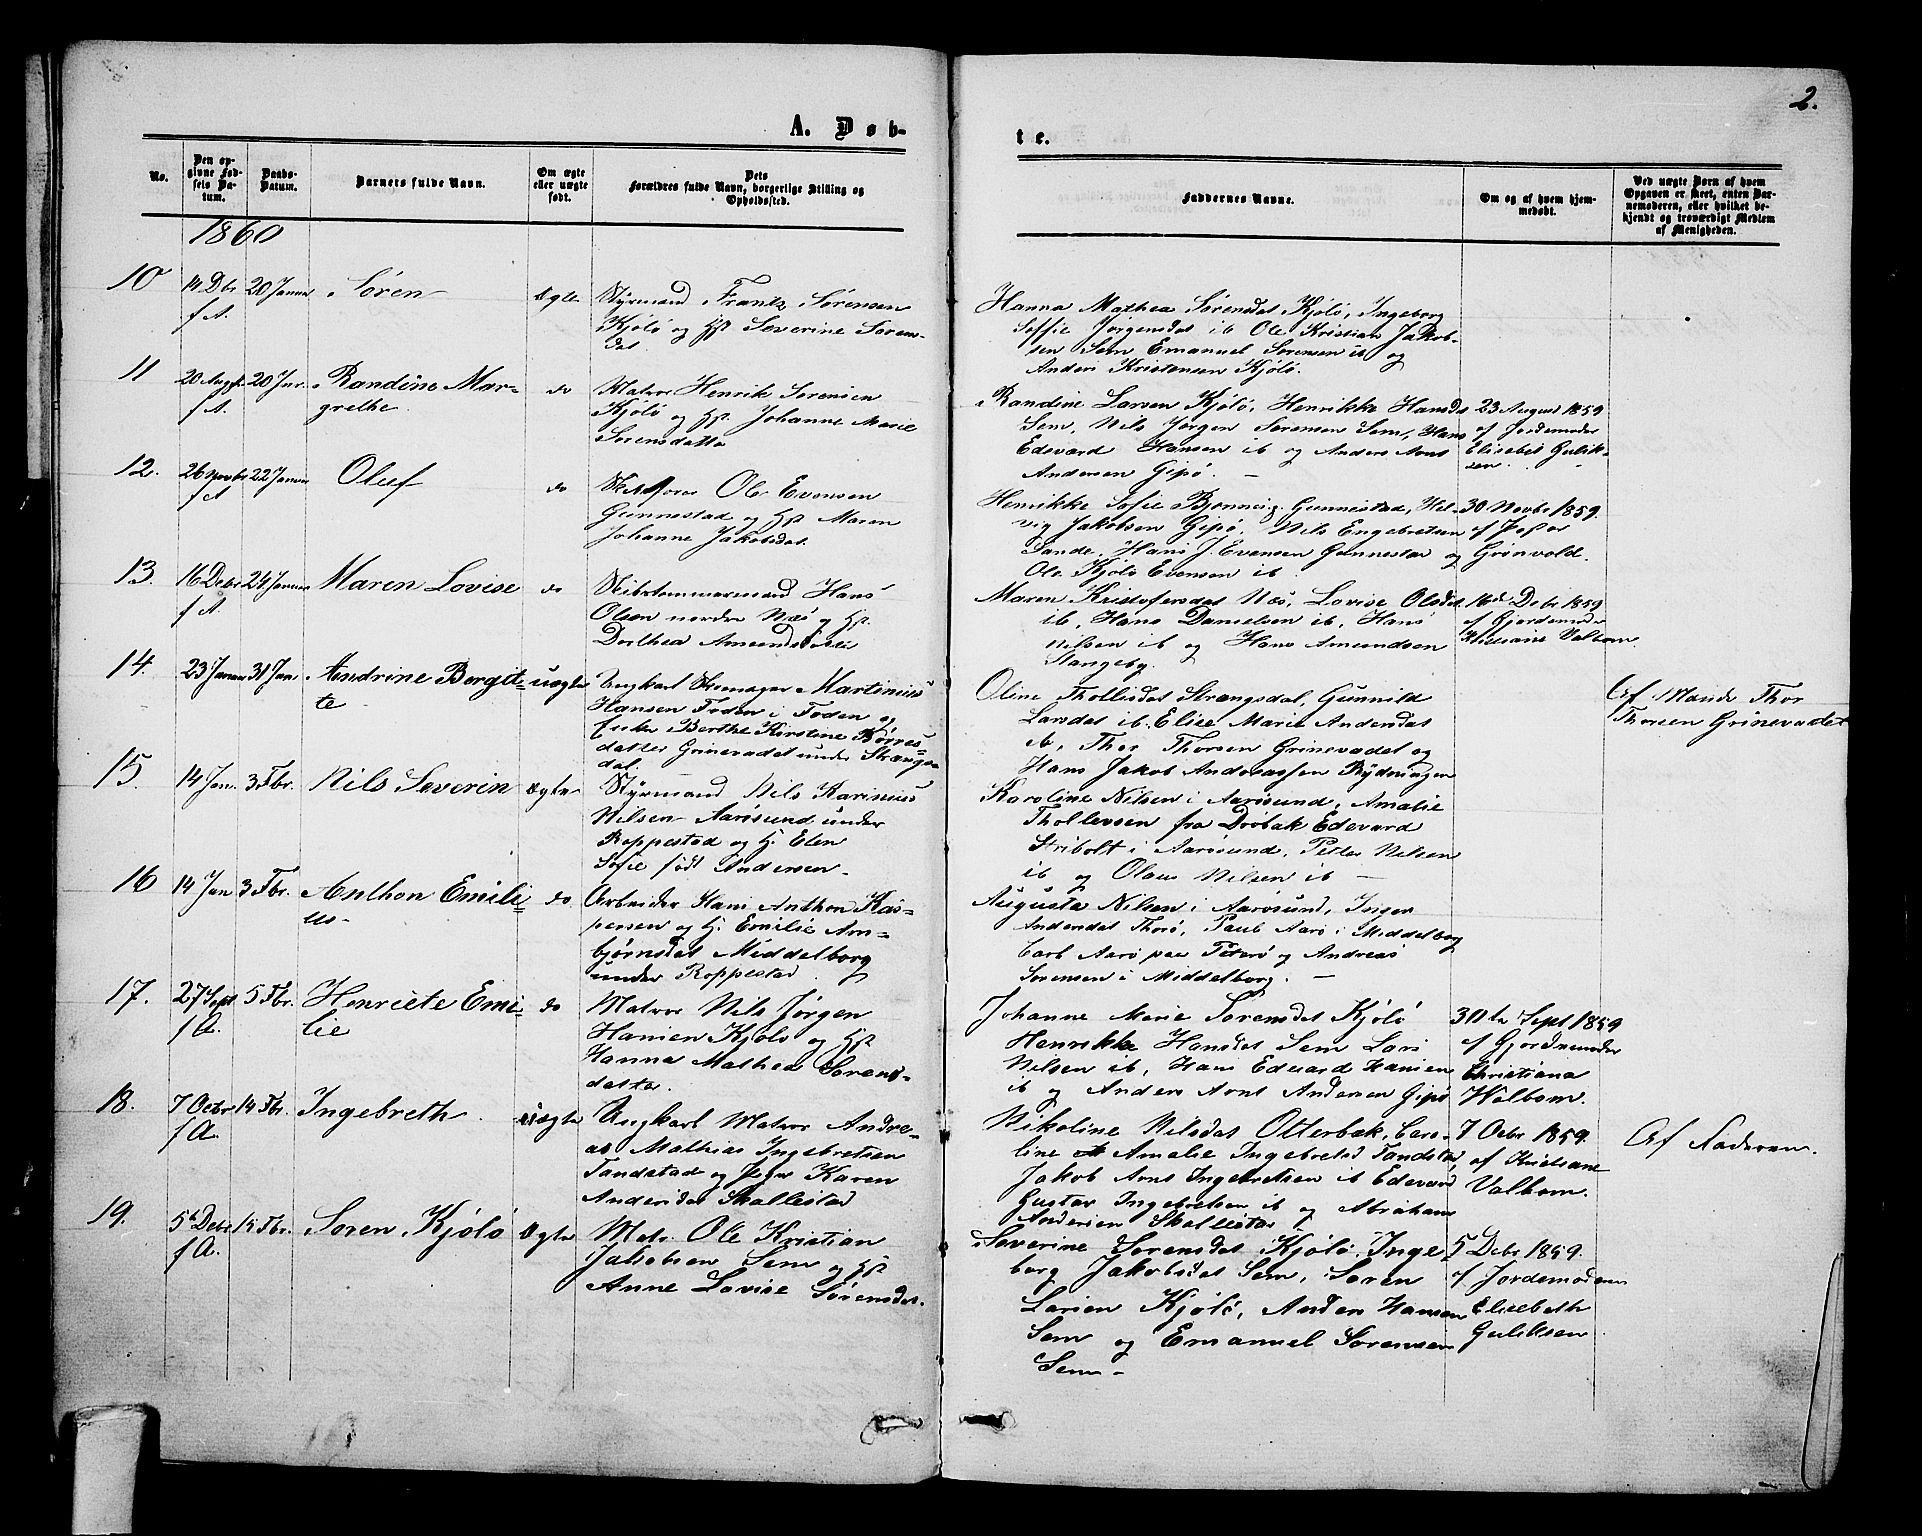 2.
A. Døb-
te.
No.
Den op-
givne Fød-
sels Da-
tum.
Daabs-
Datum.
Barnets fulde Navn.
Om ægte
eller uægte
født.
Dets
Forældres fulde Navn, borgerlige Stilling og
Opholdssted.
Faddernes Navne.
Om og af hvem hjem-
medøbt.
Ved uægte Børn af hvem
Opgaven er skeet, enten Bar-
nemoderen, eller hvilket be-
kjendt og troværdigt Medlem
af Menigheden.
1860
10
14 Dbr
f A.
20 Januar
Søren
Ægte
Styrmand Frantz Sørensen
Kjølø og Hst Severine Sørens-
dat.
Hanna Mathea Sørensdat Kjølø, Ingeborg
Soffie Jørgensdat ib Ole Kristian Jakob-
sen Sem Emanuel Sørensen ib og
Anders Kristensen Kjølø.
11
20 Augst
f A.
20 Jnr.
Randine Mar-
grethe
do
Matros Henrik Sørensen
Kjølø og Hst Johanne Marie
Sørensdatter
Randine Larsen Kjølø, Henrikke Hansdt
Sem, Nils Jørgen Sørensen Sem, Hans
Edevard Hansen ib og Anders Arnt
Andersen Gipø. -
23 August 1859
af Jordemoder
Elisabet Gulik-
sen.
12.
26 Novbr
f A
22 Januar
Oluf
do
Ole Evensen
Gunnestad og Hst Maren
Johanne Jakobsdat.
Henrikke Sofie Gunnestad, Hel-
vig Jakobsen Gipø, Nils Engebretsen
Sande, Hans J. Evensen Gunnestad og
Ole Kjølø Evensen ib.
30 Novbr 1859.
af
Grønvold.
13.
16 Debr
f A.
24 Januar
Maren Lovise
do
Skibstømmermand Hans
Olsen nordre Næs og Hst.
Dorthea Amundsdatter
Maren Kristofersdat Næs, Lovise Olsdat
ib, Hans Danielsen ib, Hans
Nilsen ib og Hans Amundsen
Stangeby.
16de Debr 1859
af Gjordemoder
Kristiane Valbom.
14.
23 Januar
31 Jan
Andrine Bergit-
te
uægte
Ungkarl Skomager Martinius
Hansen Foden i Foden og
Enke Berthe Kirstine Børres-
datter Grinevadet under Strangs-
dal.
Oline Thollisdat Strangsdal, Gunnild
Larsdat ib. Elise Marie Andersdat
ib, Thor Thorsen Grinevadet og
Hans Jakob Andreassen Rydningen
Af Mand Thor
Thorsen Grinevadet
15.
14 Jan.
3 Fbr.
Nils Severin
Ægte
Styrmand Nils Karinius
Nilsen Aarøsund under
Roppestad og H. Elen
Sofie født Andersen.
Karoline Nilsen i Aarøsund, Amalie
Thollevsen fra Drøbak Edevard
Stribolt i Aarøsund, Peter Nilsen
ib og Olaus Nilsen ib -
16
14 Jan
3 Fbr.
Anthon Emili-
us-
do.
Arbeider Hans Anthon Kas-
persen og H. Emilie Arn-
bjørnsdat Middelborg
under Roppestad.
Augusta Nilsen i Aarøsund, Inger
Andersdat Thorø, Paul Aarø i Middelborg
Carl Aarø paa Peterø og Andreas
Sørensen i Middelborg. -
17.
27 Sept
f A.
5 Fbr.
Henriete Emi-
lie
do
Matros Nils Jørgen
Hansen Kjølø og Hst
Hanna Mathea Sørens-
datter.
Johanne Marie Sørensdat Kjølø
Henrikke Hansdat Sem Lars
Nilsen ib, Hans Edvard Hansen
ib og Anders Arnt Andersen Gipø
30te Sept 1859
af Gjordemoder
Christiana
Walbom.
18.
7 Octbr
f A.
14 Fbr.
Ingebreth
uægte
Ungkarl Matros Andre-
as Mathias Ingebretsen
Tandstad og Karen
Andersdat Skallestad
Nikoline Nilsdat Otterbæk, Caro-
line Amalie Ingebretsd Tandstad,
Jakob Arnt Ingebretsen ib Edevard
Gustav Ingebretsen ib og Abraham
Andersen Skallestad
7 Octbr 1859.
af Kristiane
Valbom.
Af Faderen.
19.
5te Debr
f A.
15 Fbr.
Søren Kjølø
Ægte
Matr. Ole Kristian
Jakobsen Sem og Hst
Anne Lovise Sørensdat.
Severine Sørensdat Kjølø, Inge-
borg Jakobsdat Sem, Søren
Larsen Kjølø, Anders Hansen
Sem og Emanuel Sørensen
Sem-
5 Debr 1859.
af Jordemoderen
Elisabeth
Guliksen